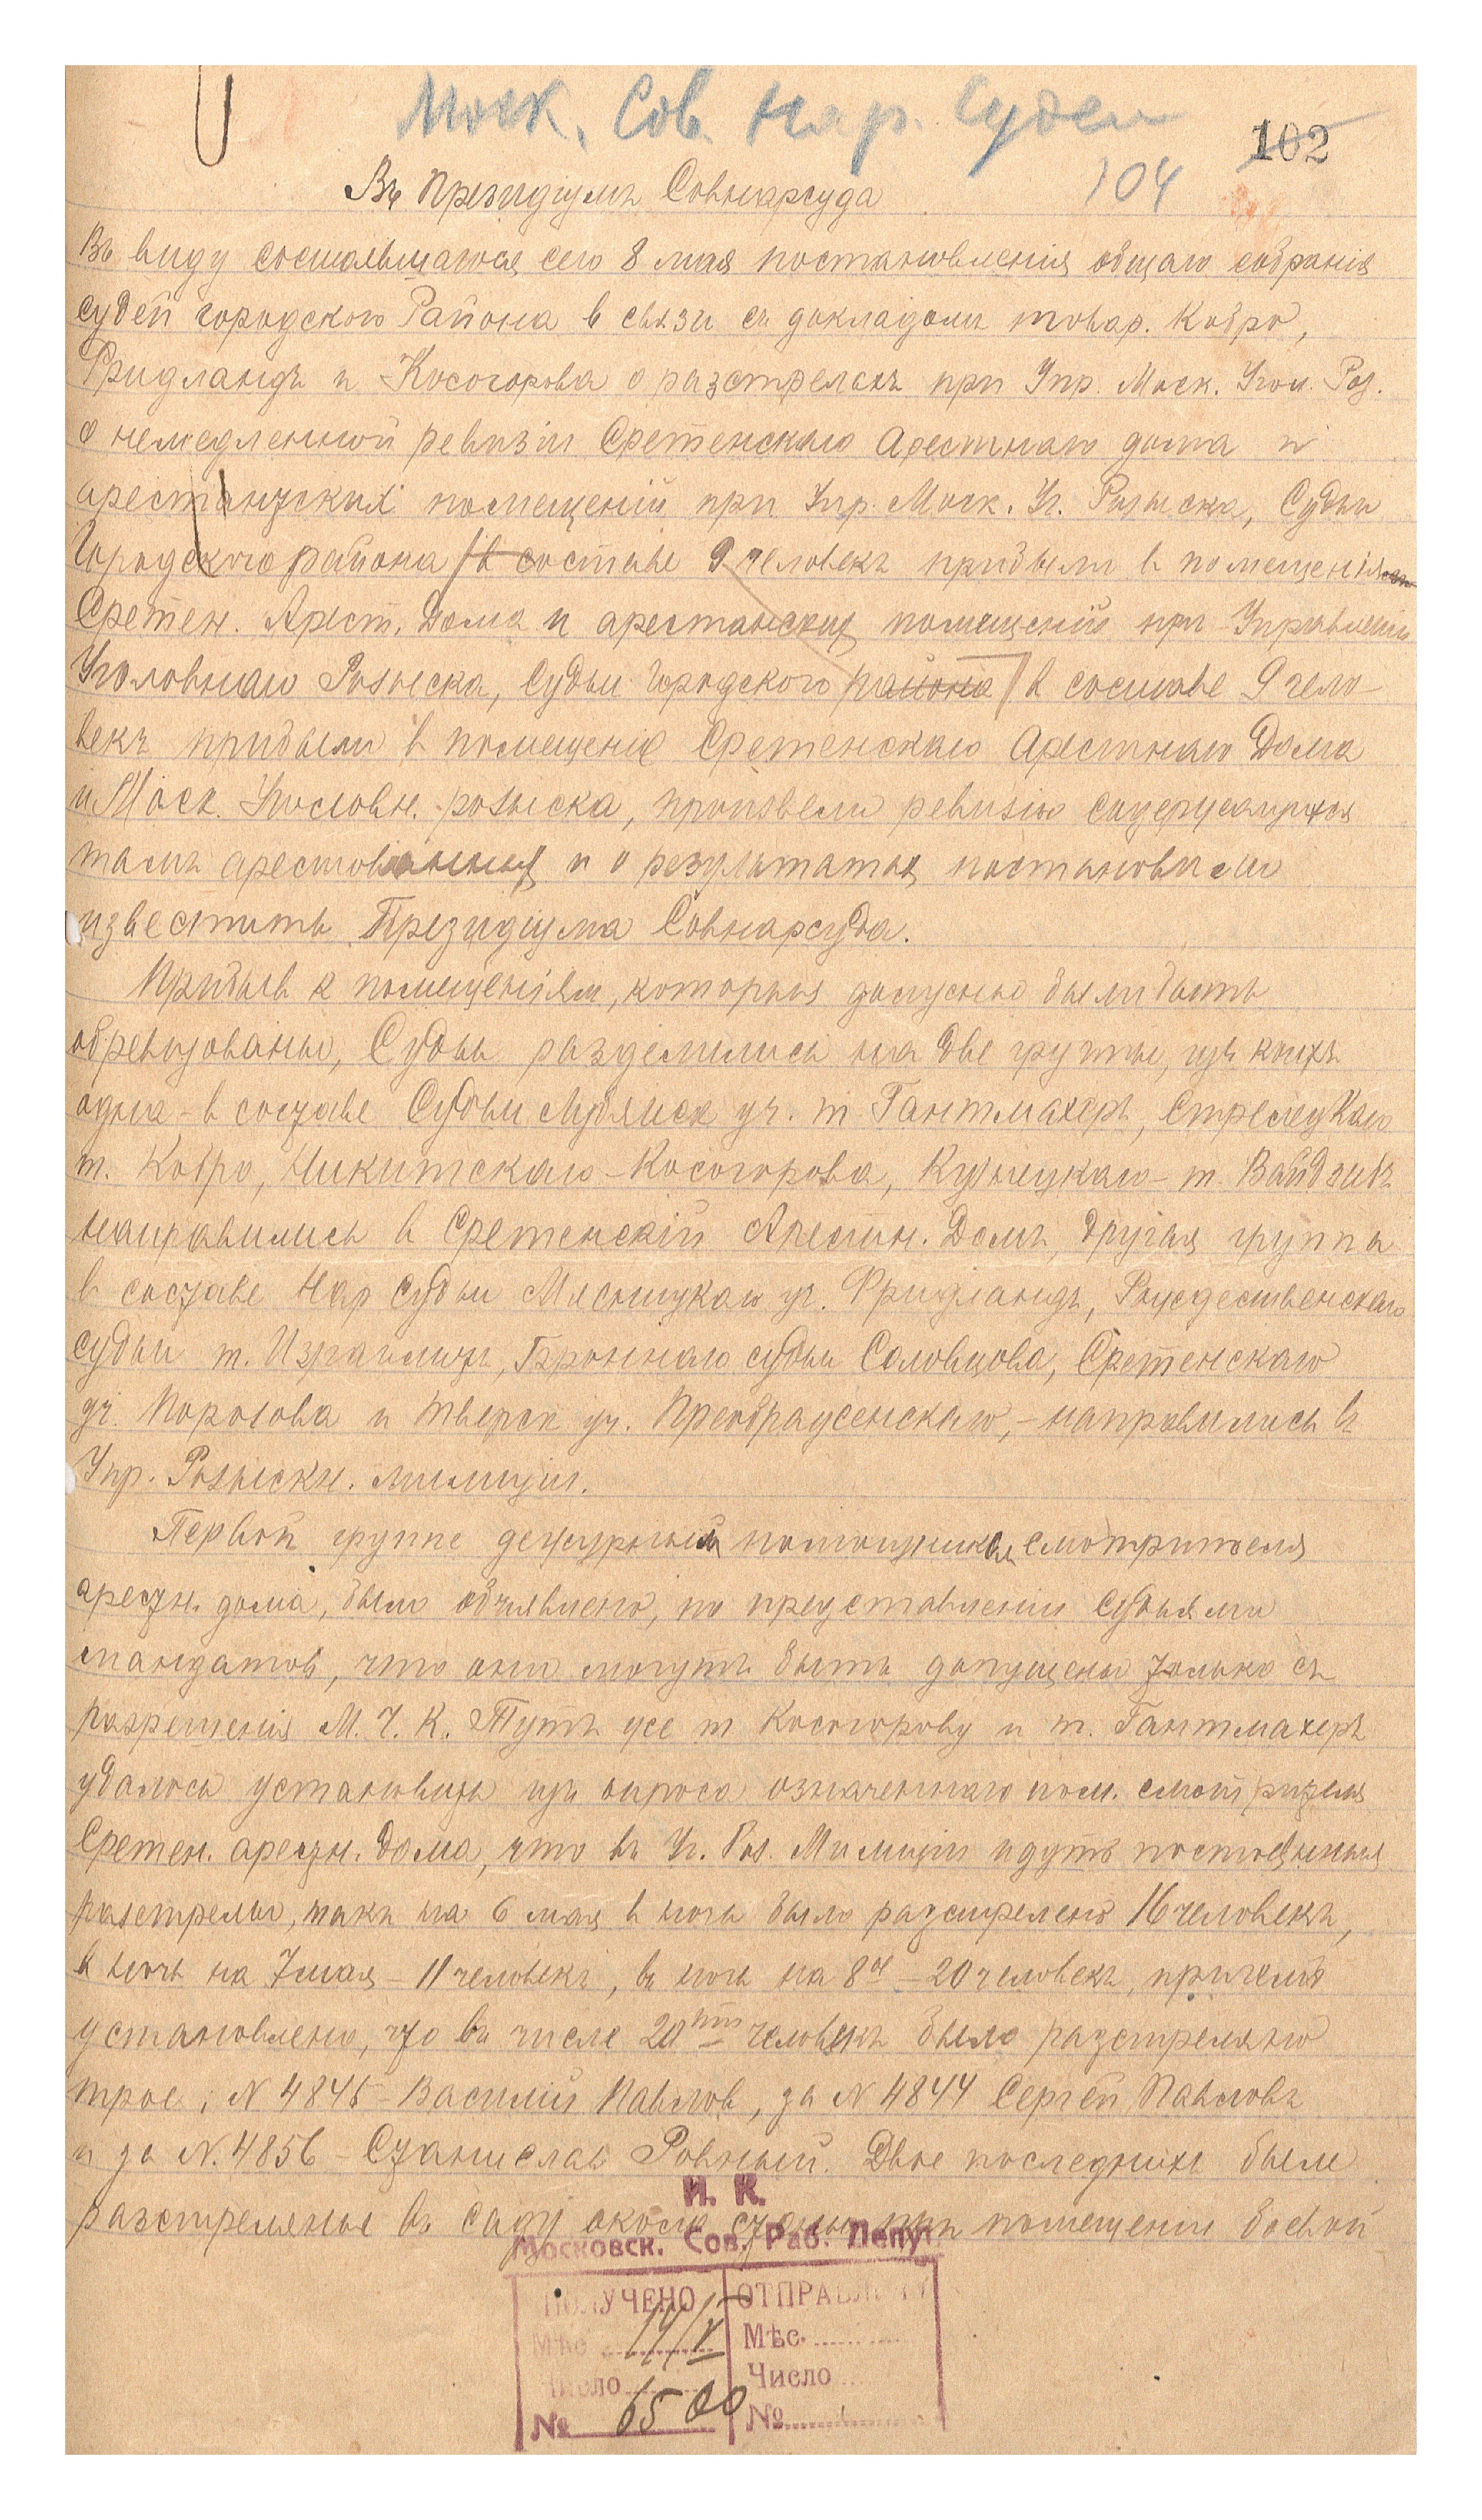 Моск. Сов. Нар. Судей
102
104
Въ Президіумъ Совнарсуда
Въ виду состоявшагося сего 8 мая постановленія общаго собранія
судей городского Района в связи съ докладомъ товар. Кобро,
Фридландъ и Косогорова о разстрелахъ при Упр. Моск. Угол. Роз.
о немедленной ревизіи Сретенскаго Арестнаго дома и
арестантских помещеній при Упр. Моск. Уг. Розыска, Судьи
Городского района в составе 9 человекъ прибыли в помещенія
Сретен. Арест. Дома и арестанских помещеній при Управленіи
Уголовнаго Розыска, Судьи Городского района в составе 9 чело-
векъ прибыли в помещеніе Сретенскаго Арестнаго Дома
и Моск. Уголовн. розыска, произвели ревизію содержащихся
тамъ арестованных и о результатах постановили
известить Президіума Совнарсуда.
Прибыв к помещеніям, которыя должны были быть
обревизованы, Судьи разделились на две группы, изъ коихъ
одна - в составе Судьи Лубянск уч. т. Гантмахеръ, Стрелецкаго
т. Кобро, Никитскаго - Косогорова, Кузнецкаго - т. Вайдзибъ
направились в Сретенскій Арестн. Домъ, другая группа
в составе Нар Судьи Мясницкаго уч. Фридландъ, Рождественскаго
судьи т. Израилитъ, Бронного судьи Соловцова, Сретенскаго
уч. Порогова и Тверск уч. Преображенскаго, - направились въ
Упр. Розыскн. милиціи.
Первой группе дежурным помощником смотрителя
арестн. дома, было объявлено, по представленіи Судьями
мандатов, что они могутъ быть допущены только съ
разрешенія М. Ч. К. Тутъ же т Косогорову и т. Гантмахеръ
удалось установить изъ опроса означеннаго пом. смотрителя
Сретен. арестн. дома, что въ Уг. Роз. Милиціи идутъ постоянныя
разстрелы, такъ на 6 мая в ночь было разстрелено 16 человекъ,
в ночь на 7 мая - 11 человекъ, въ ночь на 8ое - 20 человекъ, причемъ
установлено, что въ числе 20ти человекъ было разстреляно
трое: N 4845 - Василій Павлов, за N 4844 Сергей Павловъ
и за N. 4856 - Станислав Ровный. Двое последнихъ были
разстреляные въ саду около стены при помещеніи боевой
И. К.
Московск. Сов. Раб. Депут.
ПОЛУЧЕНО ОТПРАВЛЕНО
Мѣс. 14/V Мѣс.
Число Число
№ 6500 №